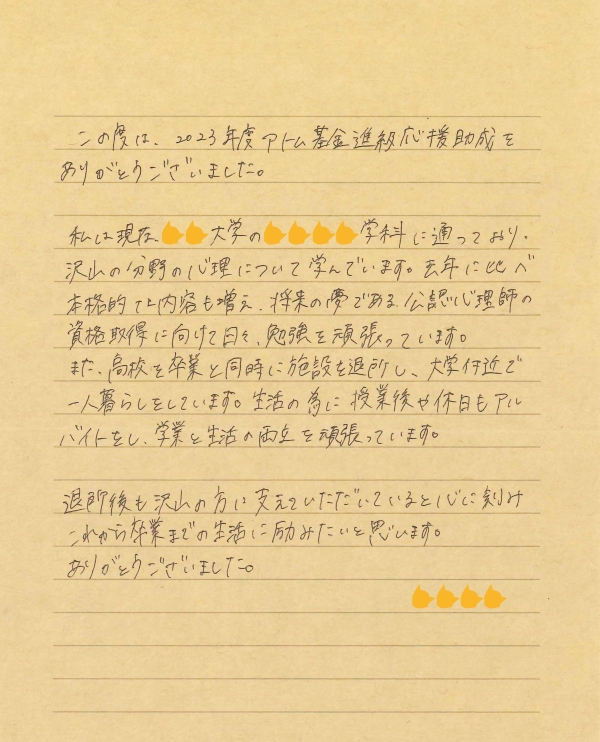 この度は、2023年度アトム基金進級応援助成を
ありがとうございました。
私は現在、大学の学科に通っており、
沢山の分野の心理について学んでいます。去年に比べ
本格的な内容も増え、将来の夢である公認心理師の
資格取得に向けて日々、勉強を頑張っています。
また、高校を卒業と同時に施設を退所し、大学付近で
一人暮らしをしています。生活の為に授業後や休日もアル
バイトをし、学業と生活の両立を頑張っています。
退所後も沢山の方に支えていただいていると心に刻み
これから卒業までの生活に励みたいと思います。
ありがとうございました。